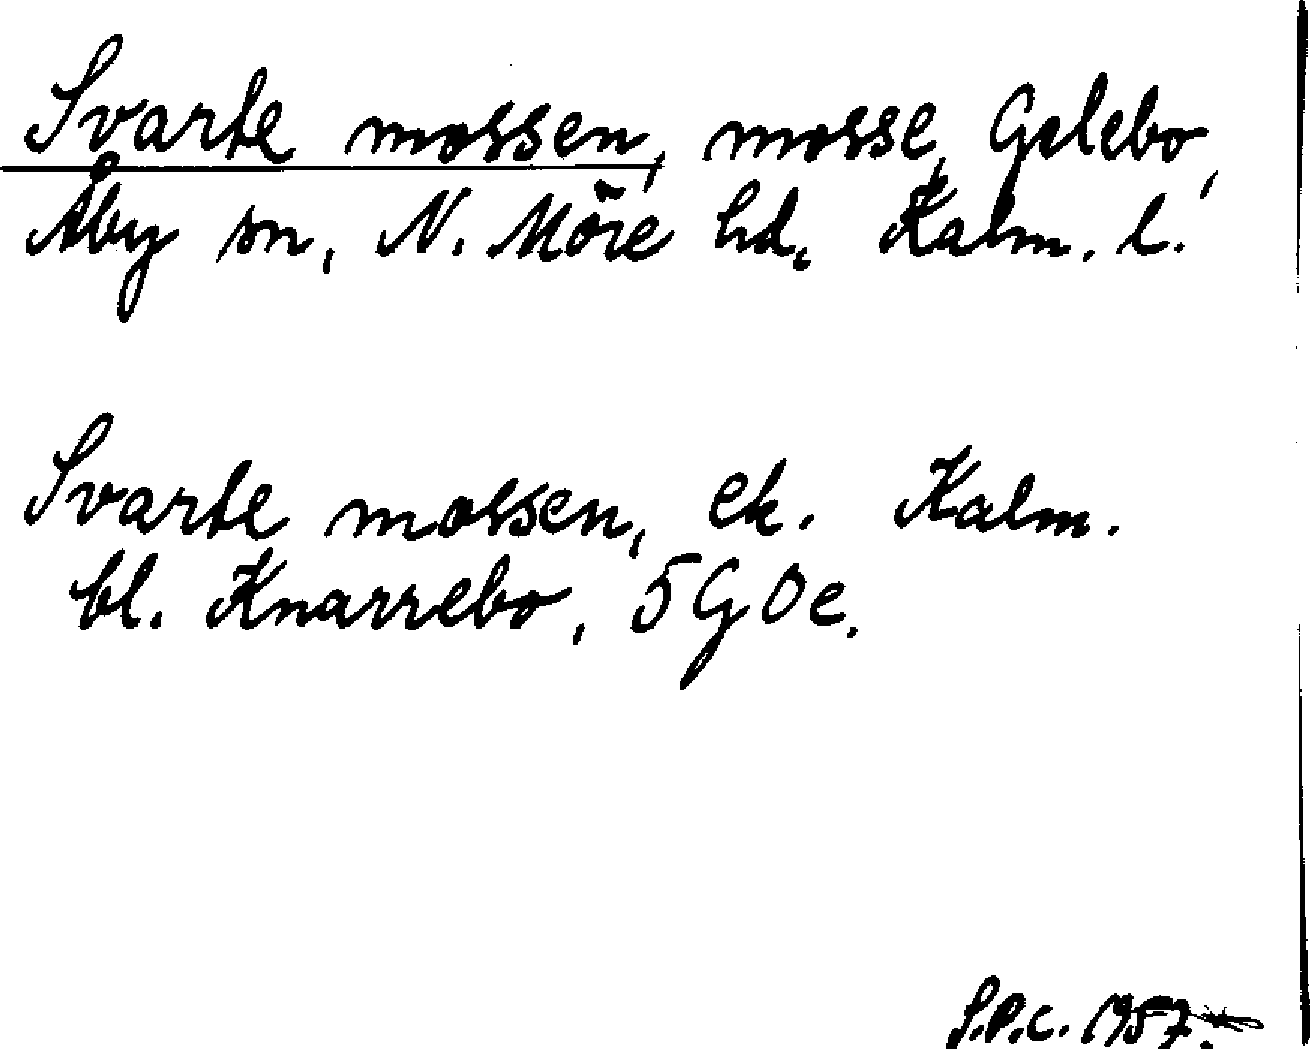 Svarte mossen, mosse, Gelebo,
Åby sn, N. Möre hd, Kalm. l.
Svarte mossen, ek. Kalm.
bl. Knarrebo, 5 G 0 e.
S.P.C. 1957.